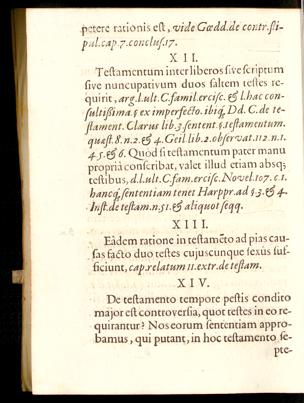 petere rationis est, vide Gœdd. de contr. sti-
pul. cap. 7. conclus. 17.
XII.
Testamentum inter liberos sive scriptum
sive nuncupativum duos saltem testes re-
quirit, arg. l. ult. C. famil. ercisc. & l. hac con-
sultissima. § ex imperfecto. ibiq́, Dd. C. de te-
stament. Clarus lib. 3. sentent. § testamentum.
quæst. 8. n. 2. & 4. Geil lib. 2. observat. 112. n. 1.
4. 5. & 6. Quod si testamentum pater manu
propria conscribat, valet illud etiam absq;
testibus, d. l. ult. C. fam. ercisc. Novel. 107. c. 1.
hancq́, sententiam tenet Harppr. ad § 3. & 4.
Inst. de testam. n. 51. & aliquot seqq.
XIII.
Eâdem ratione in testamẽto ad pias cau-
sas facto duo testes cujuscunque sexûs suf-
ficiunt, cap. relatum 11. extr. de testam.
XIV.
De testamento tempore pestis condito
major est controversia, quot testes in eo re-
quirantur? Nos eorum sententiam appro-
bamus, qui putant, in hoc testamento se-
pte-